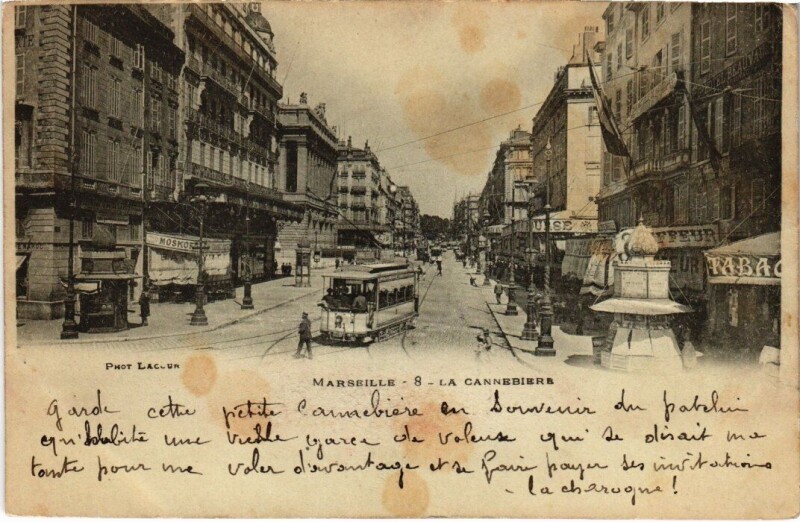 MOSKO
USE
EFFEUR
TABAC
PHOT LACOUR
MARSEILLE - 8 - LA CANNEBIERE
Garde cette petite Cannebière en Souvenir du patelin
qu'habite une vieille garce de voleuse qui se disait ma
tante pour me voler d'avantage et se faire payer ses invitations
- la charogne !